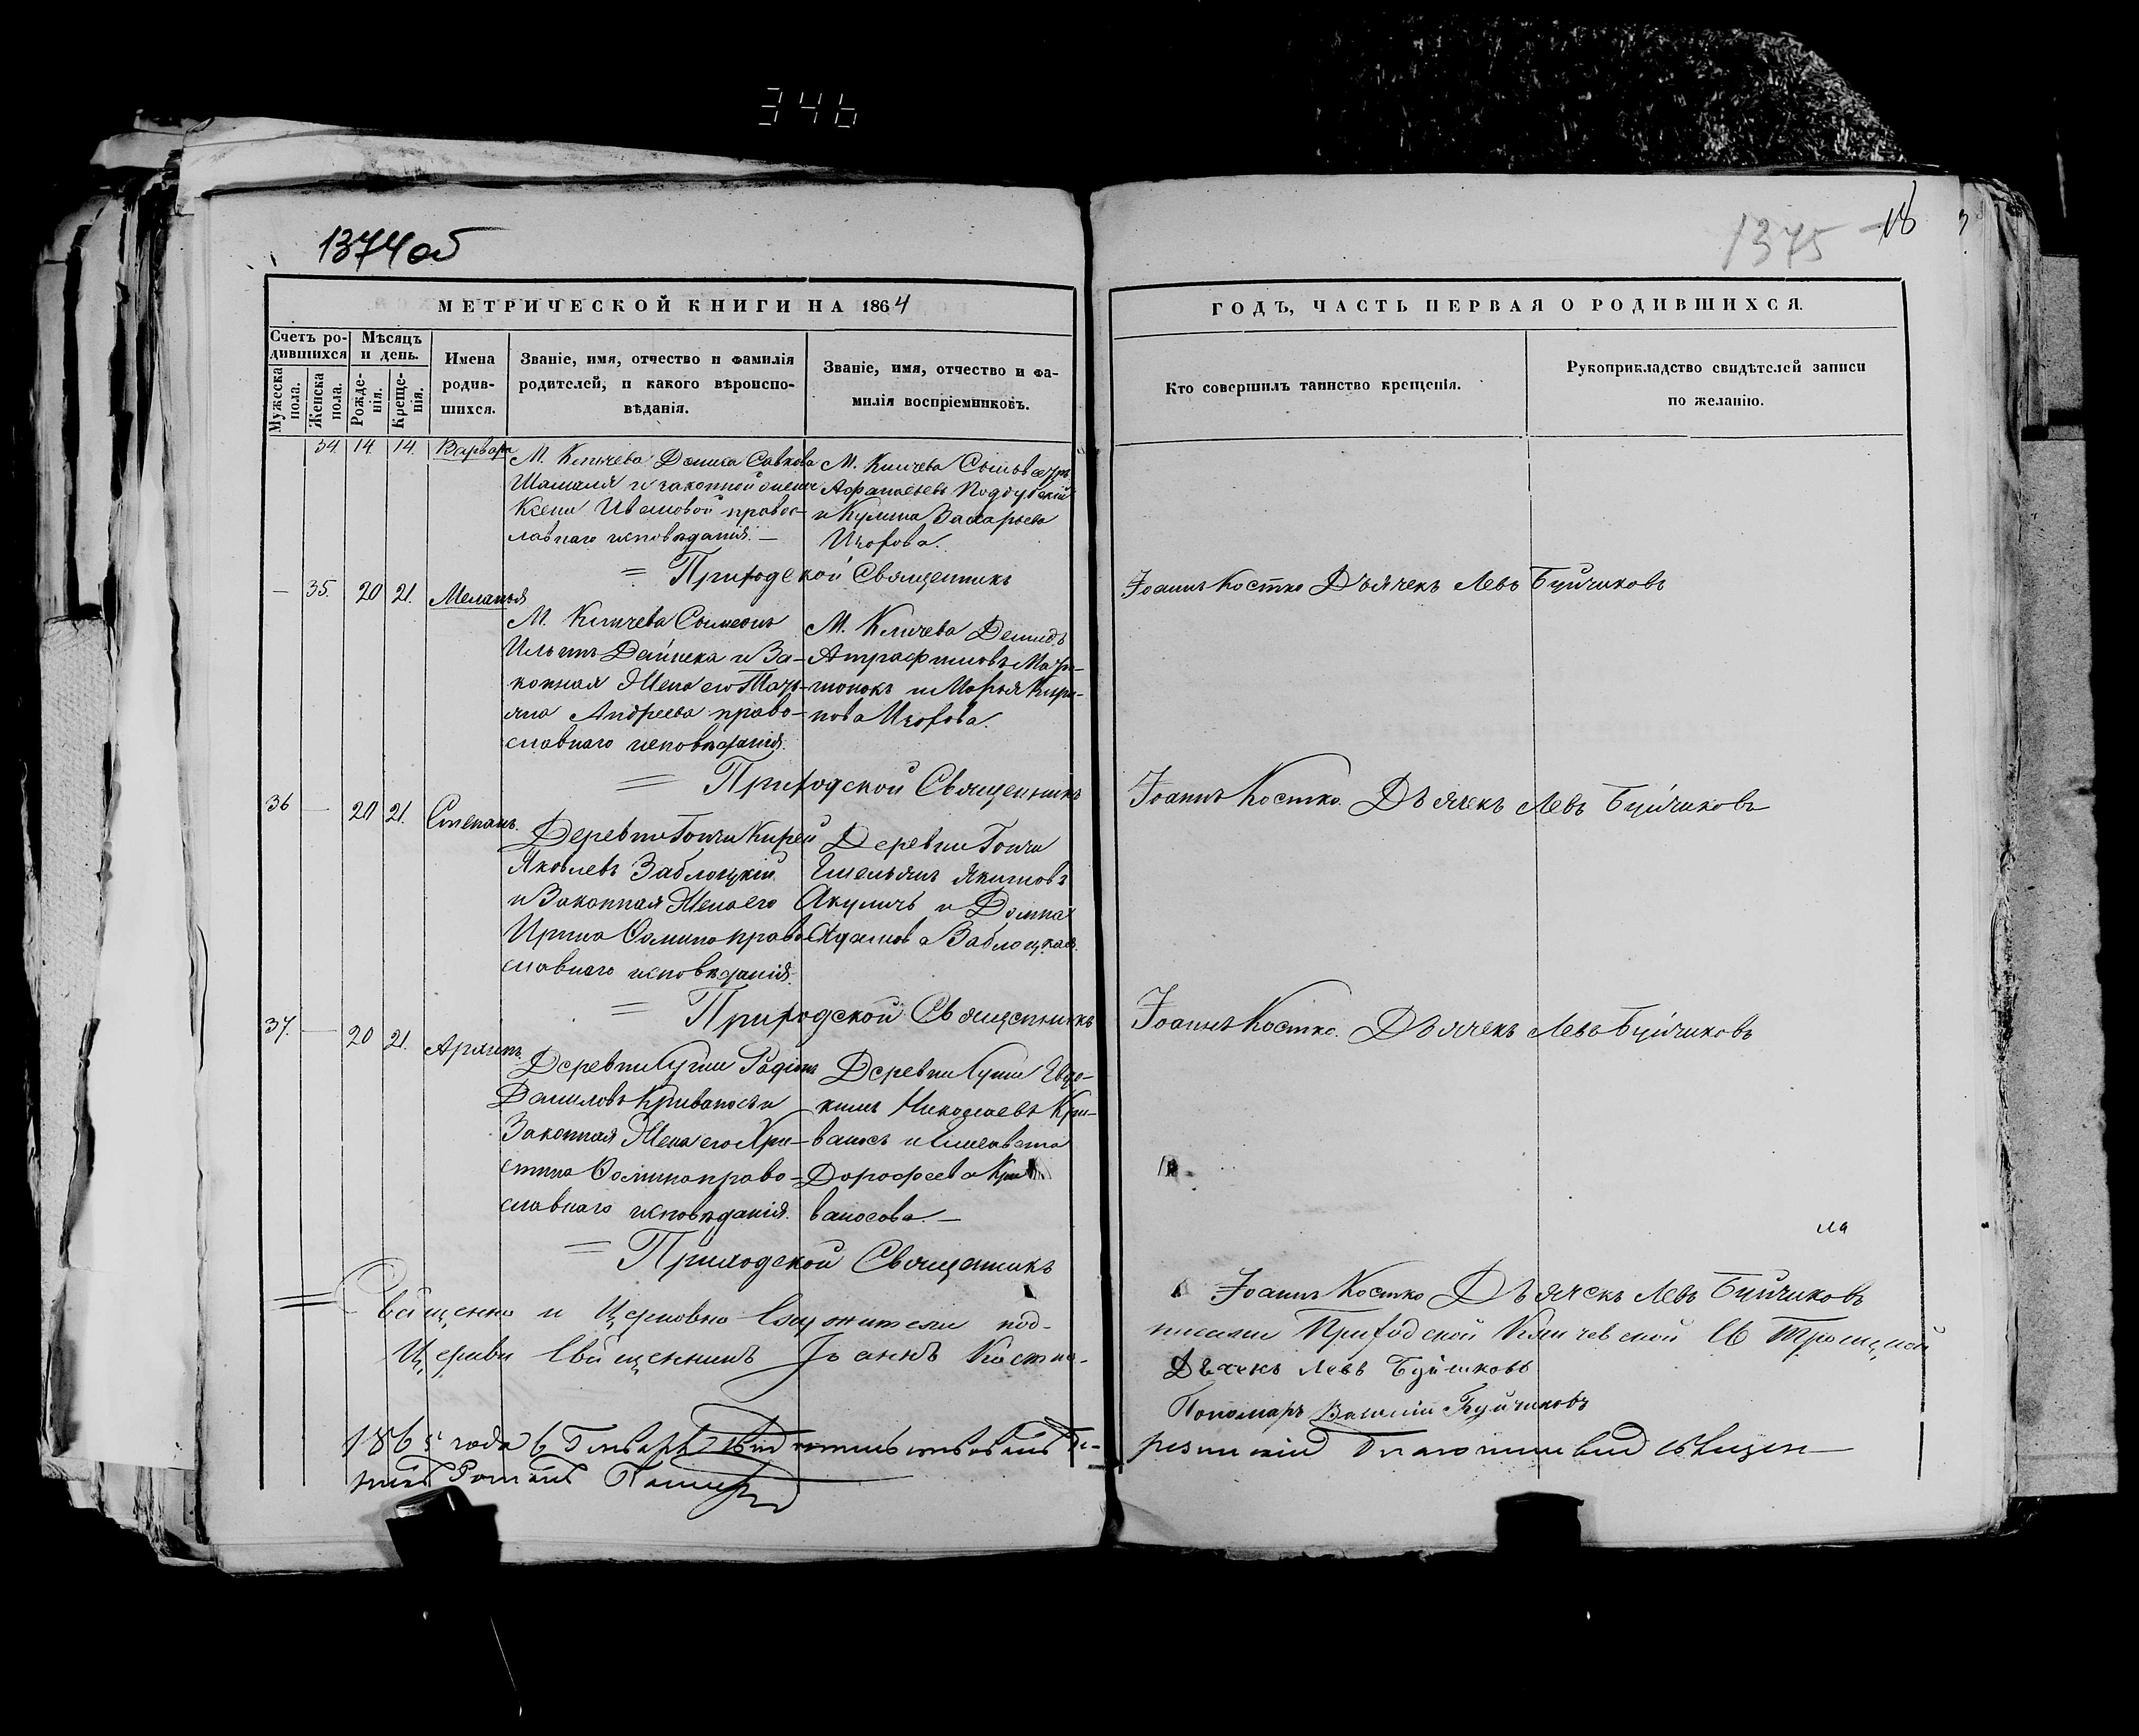 346
1374об
1375
18
МЕТРИЧЕСКОЙ КНИГИ НА 1864
ГОДЪ, ЧАСТЬ ПЕРВАЯ О РОДИВШИХСЯ.
Счетъ ро-
дившихся
Мужеска
пола.
Женска
пола.
Мѣсяцъ
и день.
Рожде-
нія.
Креще-
нія.
Имена
родив-
шихся.
Званіе, имя, отчество и фамилія
родителей, и какого вѣроиспо-
вѣданія.
Званіе, имя, отчество и фа-
милія воспріемниковъ.
Кто совершилъ таинство крещенія.
Рукоприкладство свидѣтелей записи
по желанію.
34. 14 14. Варвара
М. Кличева Савкова
и законной
Ксени Ивановой правос-
лавнаго исповѣданія. —
М. Кличева
Афанасьевъ Поддубскій
и Захарьева
Изофова.
= Приходской Священникъ
Іоаннъ Костко Дьячекъ Левъ Буйчиковъ
— 35. 20 21. Меланья
М. Кличева Сымеонъ
Ильинъ Дейнека и За-
конная Жена его Татъ-
яна Андреева право-
славнаго исповѣданія.
М. Кличева Демидъ
Марья Кири-
лова Изофова.
= Приходской Священникъ
Іоаннъ Костко. Дьячекъ Левъ Буйчиковъ
36 — 20 21. Степанъ.
Деревни Гончи Кирей
Яковлевъ Заблоцкій
и Законная Жена его
Ирина Фомина право-
славнаго исповѣданія.
Деревни Гончи
Емельянъ Якимовъ
Акуличъ и Домна
Адамова Заблоцкая.
= Приходской Священникъ
Іоаннъ Костко. Дьячекъ Левъ Буйчиковъ
37. — 20 21.
Деревни Суши Радіонъ
Даниловъ Кривоносъ и
Законная Жена его Хри-
стина Фомина право-
славнаго исповѣданія.
Деревни Суши Евдо-
кимъ Николаевъ Кри-
ваносъ и Елисавета
Дорофеева Кри
ваносова. —
= Приходской Священникъ
Іоаннъ Костко Дьячекъ Левъ Буйчиковъ
Священно и Церковно Служители под-
писали Приходской Кличевской Св Троицкой
Церкви Священникъ Іоаннъ Костко.
Дьячекъ Левъ Буйчиковъ
Пономарь Василій Буйчиковъ
1865 года 6 Генваря свидѣтельствовалъ Бе-
резинскій Благочинный Священ-
никъ Романъ